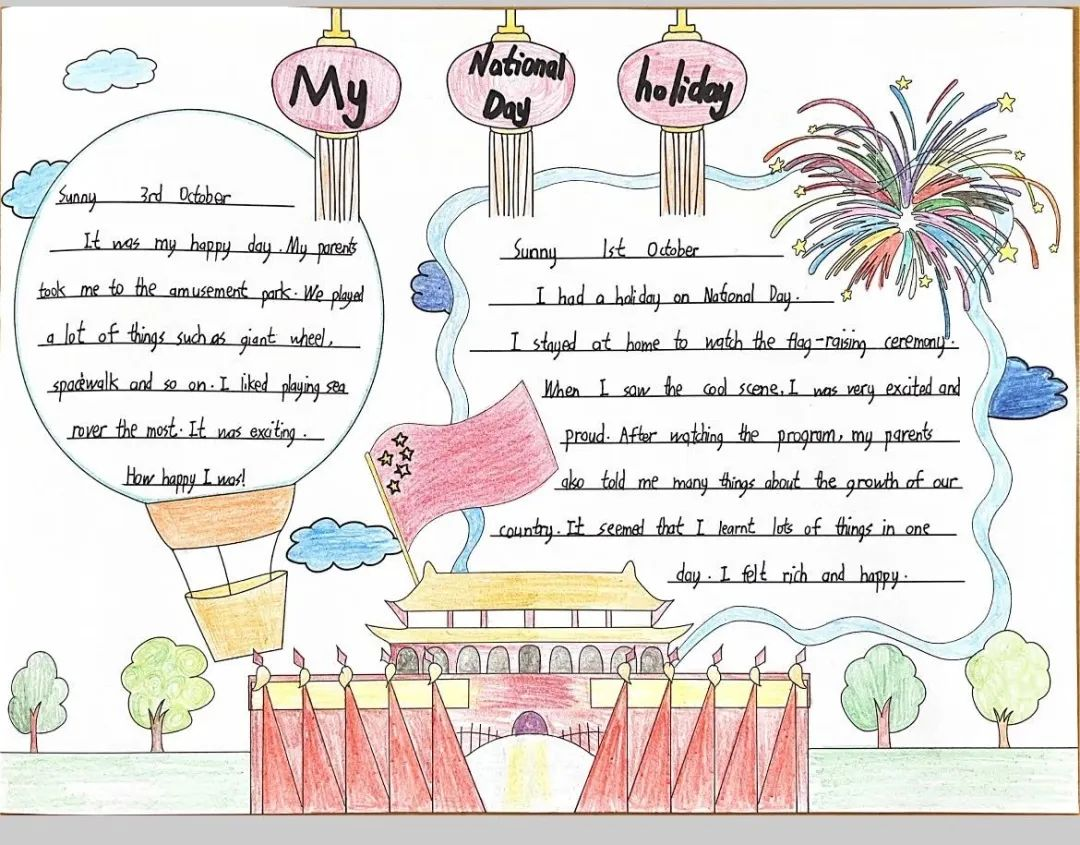 My
National
Day
holiday
Sunny 3rd October
It was my happy day. My parents
took me to the amusement park. We played
a lot of things such as giant wheel,
spacewalk and so on. I liked playing sea
rover the most. It was exciting.
How happy I was!
Sunny 1st October
I had a holiday on National Day.
I stayed at home to watch the flag-raising ceremony.
When I saw the cool scene, I was very excited and
proud. After watching the program, my parents
also told me many things about the growth of our
country. It seemed that I learnt lots of things in one
day. I felt rich and happy.